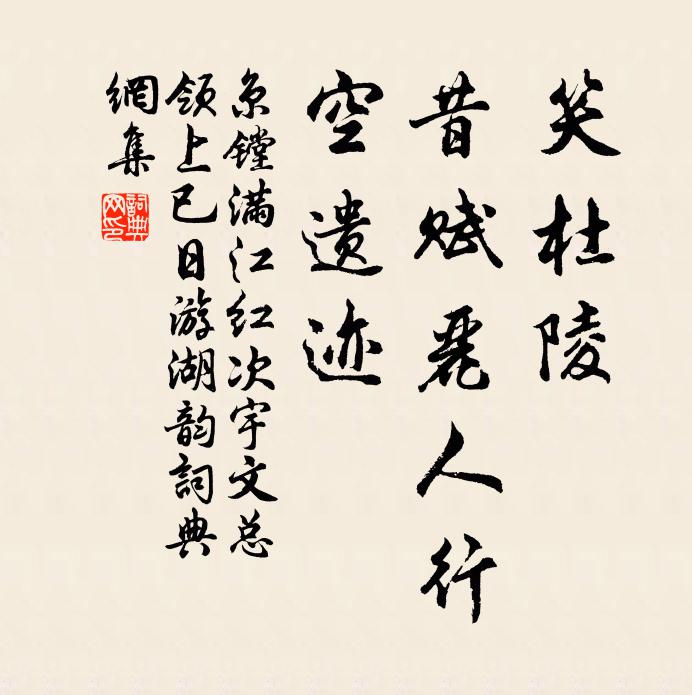 笑杜陵
昔赋丽人行
空遗迹
京镗满江红次宇文总
领上巳日游湖韵詞典
網集
詞典
网印